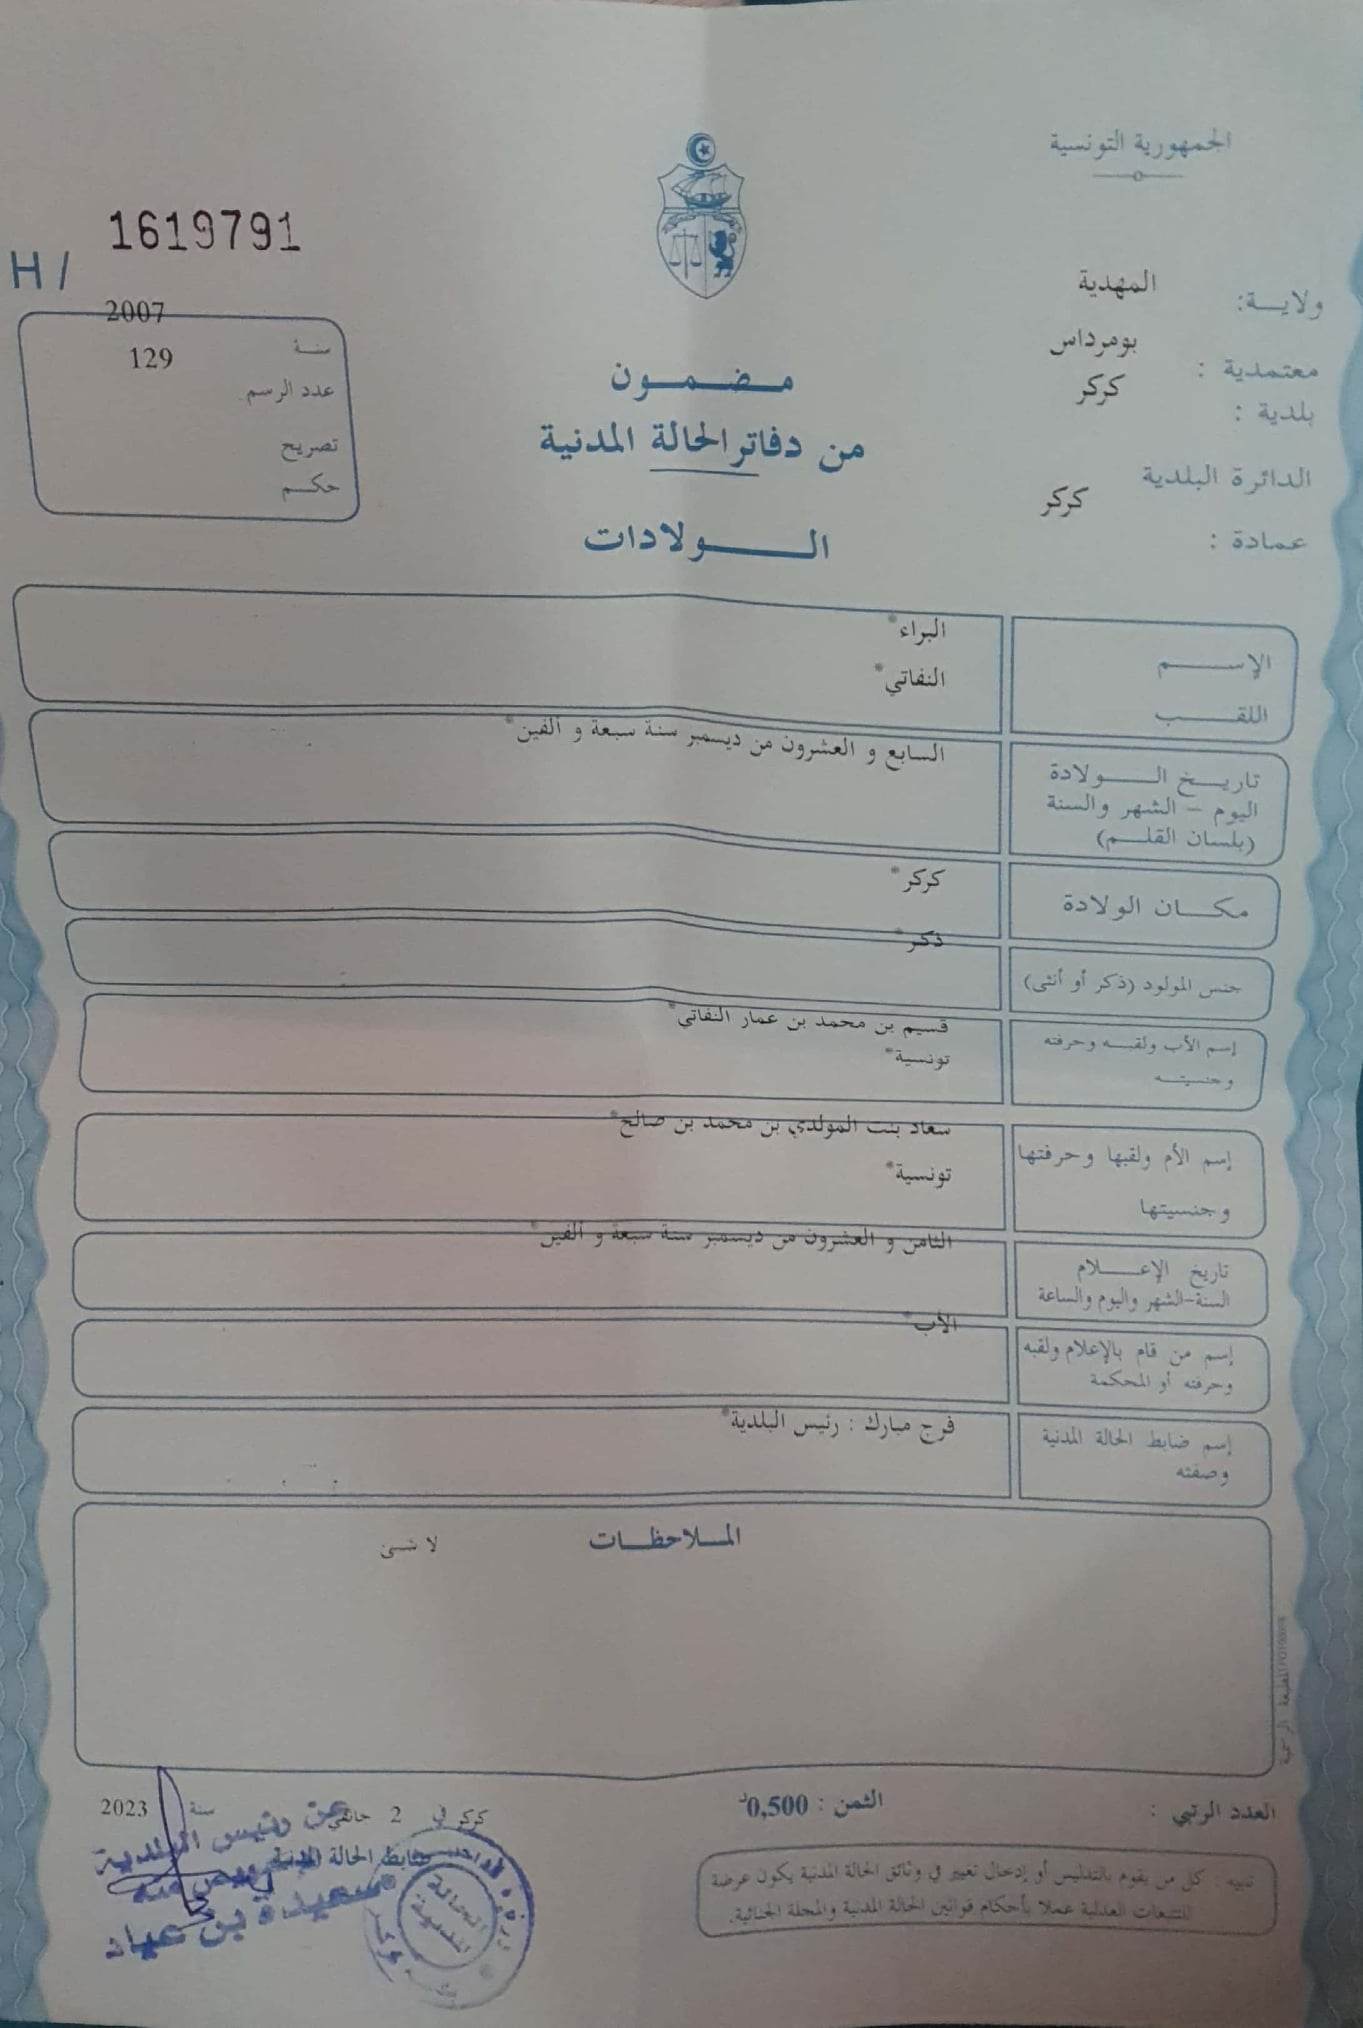 الجمهورية التونسية
1619791
H /
ولايـــة: المهدية
معتمدية : بومرداس
بلدية : كركر
الدائرة البلدية
عمادة : كركر
2007
سنـة
129
عدد الرسم
تصريح
حكـم
مـضـمـون
من دفاتر الحالة المدنية
الـــولادات
الإســـم البراء*
اللقـــب النفاتي*
تاريـخ الـــولادة السابع و العشرون من ديسمبر سنة سبعة و ألفين*
اليوم - الشهر والسنة
(بلسان القلـم)
مكـــان الولادة كركر*
جنس المولود (ذكر أو أنثى) ذكر*
إسم الأب ولقبـه وحرفته قسيم بن محمد بن عمار النفاتي*
وجنسيتـه تونسية*
إسم الأم ولقبها وحرفتها سعاد بنت المولدي بن محمد بن صالح*
وجنسيتها تونسية*
تاريخ الإعـــلام الثامن و العشرون من ديسمبر سنة سبعة و ألفين*
السنة-الشهر واليوم والساعة
إسم من قام بالإعلام ولقبه الأب*
وحرفته أو المحكمة
إسم ضابط الحالة المدنية فرج مبارك : رئيس البلدية*
وصفته
المــلاحظــات
لا شئ
العدد الرتبي :
الثمن : 0,500د
كركر في 2 جانفي سنة 2023
ضابط الحالة المدنية
عن رئيس البلدية
سعيدة بن عياد
الحالة
المدنية
كركر
تنبيه : كل من يقوم بالتدليس أو إدخال تغيير في وثائق الحالة المدنية يكون عرضة
للتتبعات العدلية عملا بأحكام قوانين الحالة المدنية والمجلة الجنائية.
المطبعة الرسمية